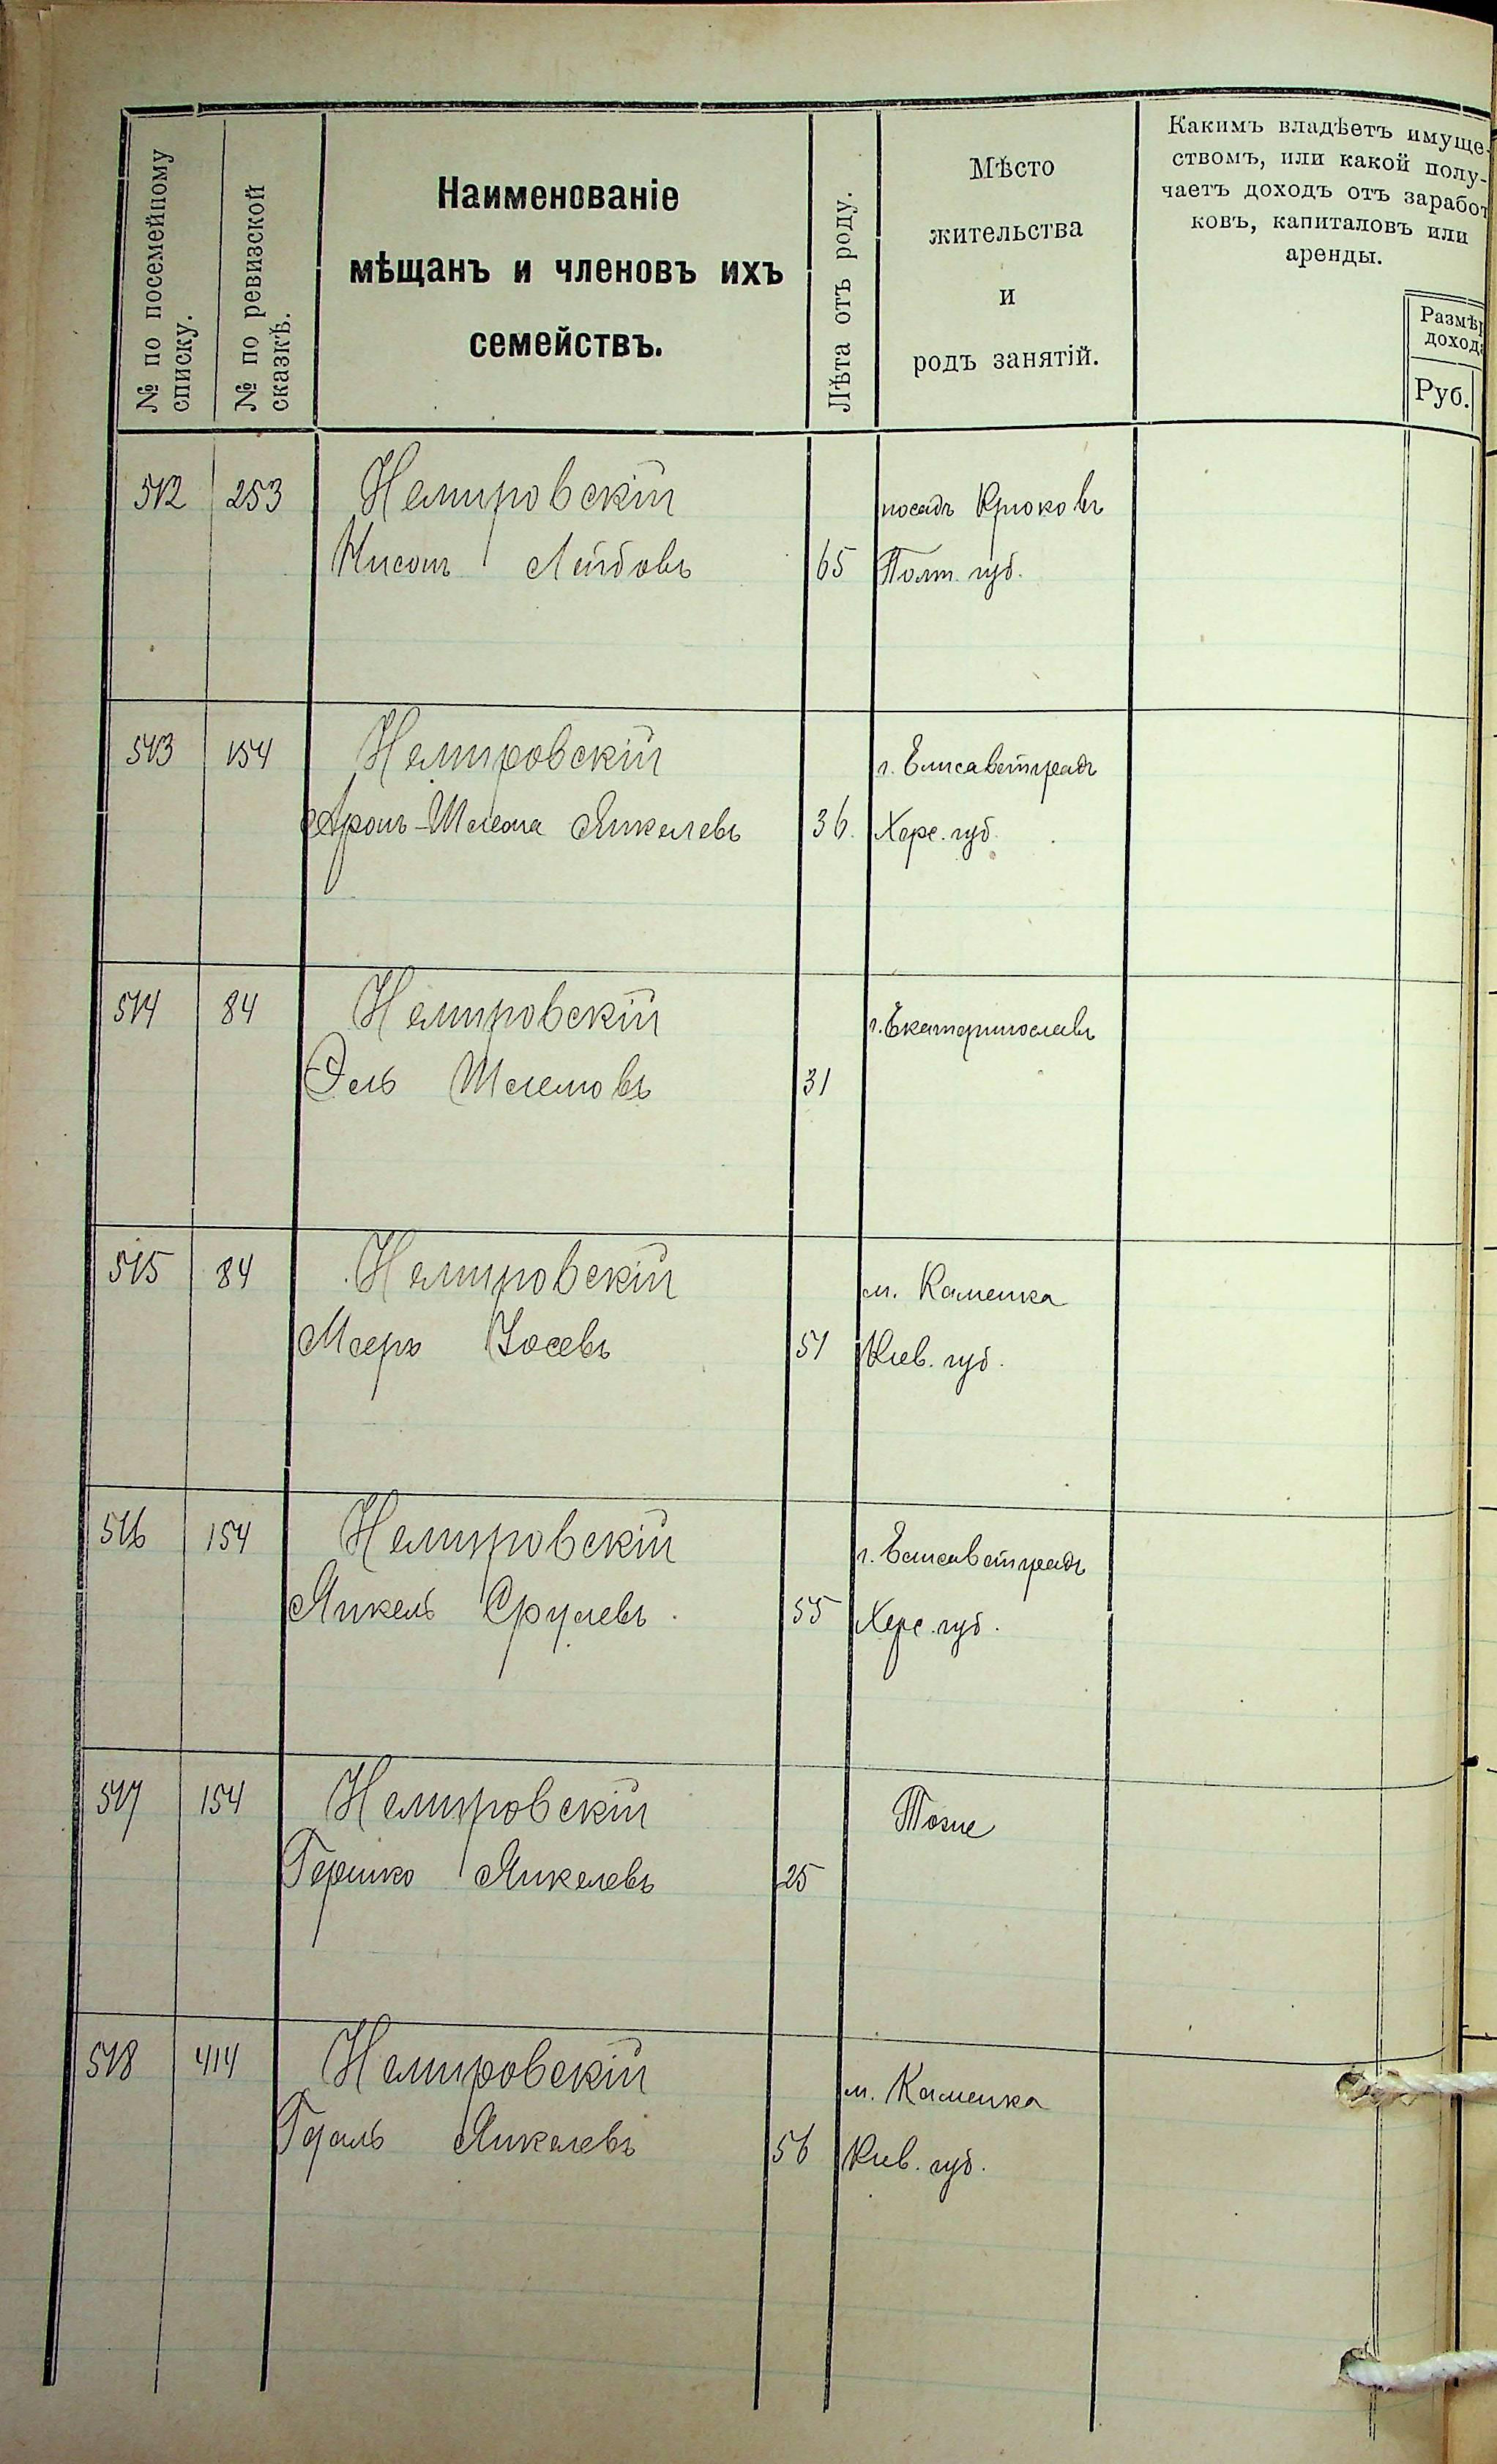 № по посемейному
списку.
№ по ревизской
сказкѣ.
Наименованіе
мѣщанъ и членовъ ихъ
семействъ.
Лѣта отъ роду.
Мѣсто
жительства
и
родъ занятій.
Какимъ владѣетъ имуще-
ствомъ, или какой полу-
чаетъ доходъ отъ заработ
ковъ, капиталовъ или
аренды.
Размѣр
дохода
Руб.
512 253 Немировскій посадъ Крюковъ
Нисонъ Лейбовъ 65 Полт. губ.
513 154 Немировскій г. Елисаветградъ
Аронъ-Шлема Янкелевъ 36. Херс. губ.
514 84 Немировскій г. Екатеринославъ
Эль Шлемовъ 31
515 84 Немировскій м. Каменка
Мееръ Іосевъ 51 Кіев. губ.
516 154 Немировскій г. Елисаветградъ
Янкель Срулевъ 55 Херс. губ.
517 154 Немировскій Тоже
Гершко Янкелевъ 25
518 414 Немировскій м. Каменка
Гдаль Янкелевъ 56 Кіев. губ.